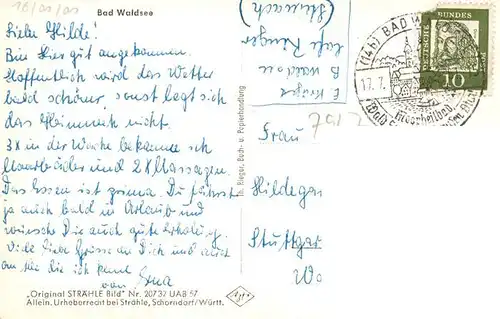 Bad Waldsee
Liebe Hilde!
Bin hier gut angekommen.
Hoffentlich wird das Wetter
bald schöner, sonst legt sich
das nicht.
3x in der Woche bekomme ich
Moorbäder und 2x Massagen.
Das Essen ist prima. Du fährst
ja auch bald in Urlaub und
wünsche Dir auch gute Erholung.
Viele liebe Grüsse an Dich und auch
an die ich kenne
von Erna
"Original STRÄHLE Bild" Nr. 20732 UAB 57
Allein. Urheberrecht bei Strähle, Schorndorf/Württ.
Th. Rieger, Buch- u. Papierhandlung
Agfa
E. Krüger
B. Waldsee
(14b) BAD W
17.7.
Moorheilbad
DEUTSCHE BUNDES
10
Frau
Hildegar
Stuttgar
Wo